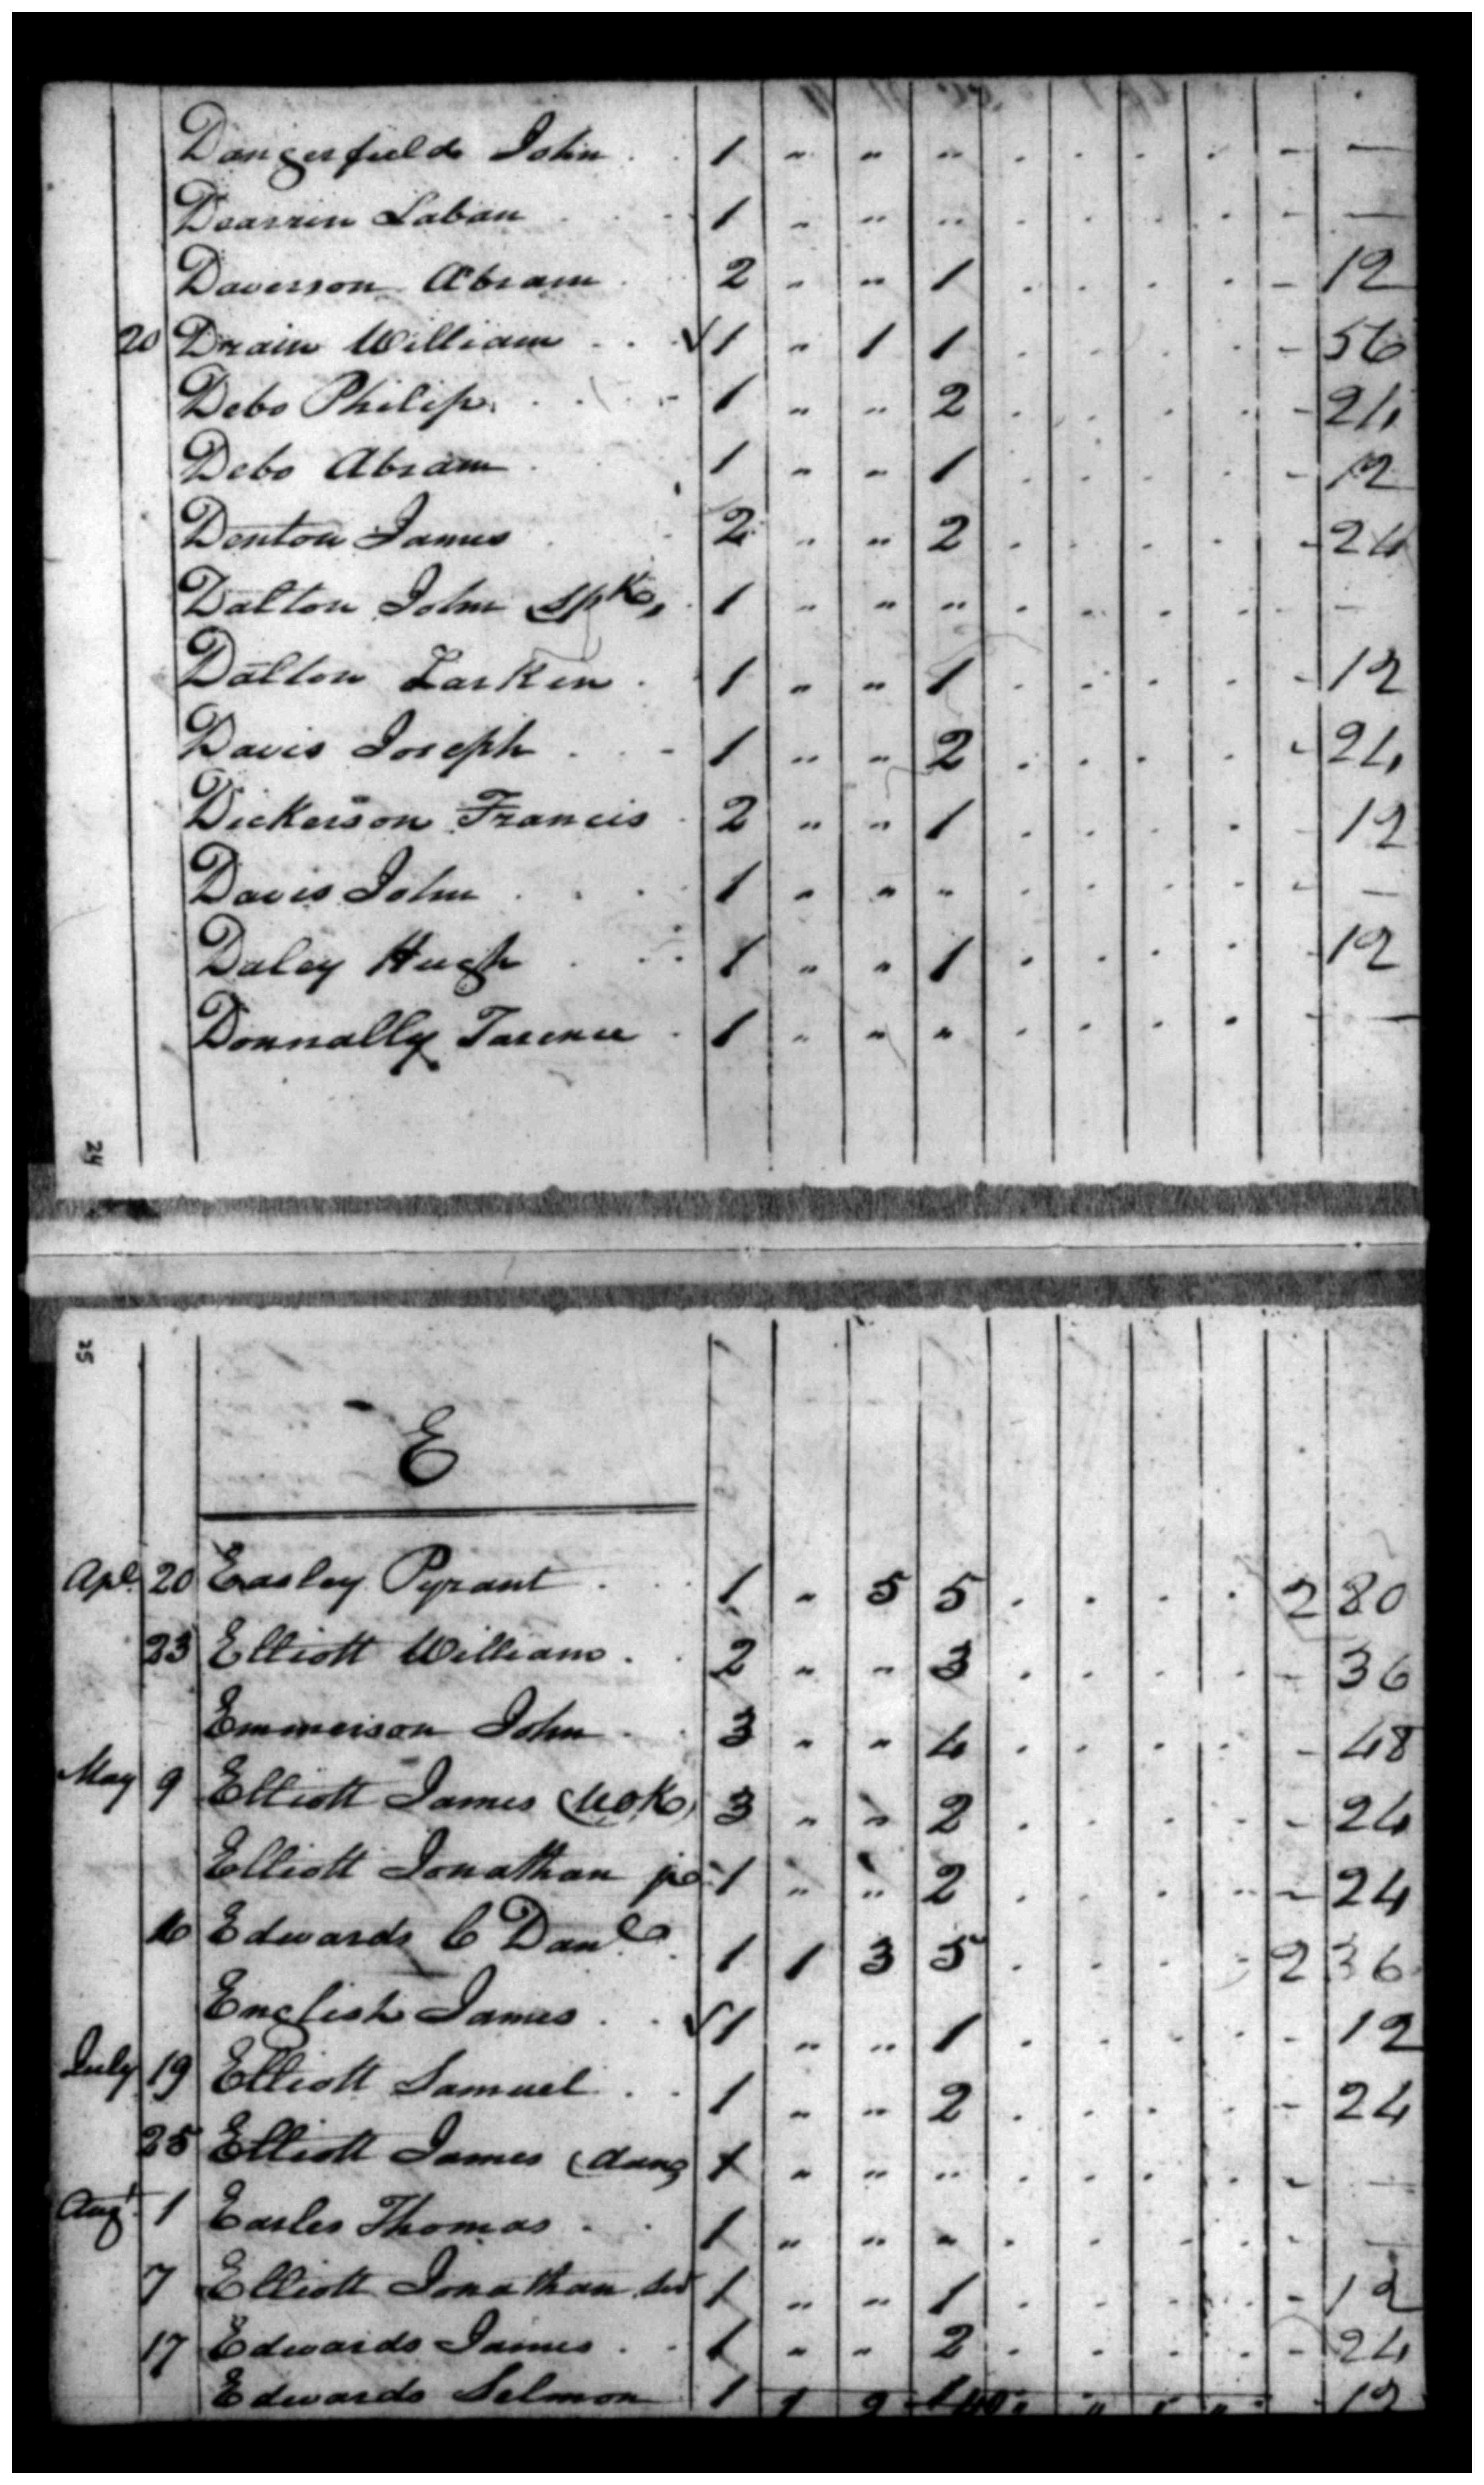 Dangerfield John . . 1 " " " . . . . - —
Dearrin Laban . . . 1 " " " . . . . - —
Daverson Abram . . 2 " " 1 . . . . - 12
20 Drain William . . √ 1 " 1 1 . . . . - 56
Debo Philip . . . 1 " " 2 . . . . - 24
Debo Abram . . 1 " " 1 . . . . - 12
Denton James . . 2 " " 2 . . . . - 24
Dalton John Spk, . 1 " " " . . . . - —
Dalton Larken . . 1 " " 1 . . . . - 12
Davis Joseph . . - 1 " " 2 . . . . - 24
Dickerson Francis . 2 " " 1 . . . . - 12
Davis John . . . 1 " " " . . . . - —
Daley Hugh . . . 1 " " 1 . . . . - 12
Donnally Tarence . 1 " " " . . . . - —
24
35
E
Apl. 20 Easley Pyrant . . 1 " 5 5 . . . . 2 80
23 Elliott William . . 2 " " 3 . . . . - 36
Emmerson John . . 3 " " 4 . . . . - 48
May 9 Elliott James 3 " " 2 . . . . - 24
Elliott Jonathan jr 1 " " 2 . . . . - 24
16 Edwards C Danl . 1 1 3 5 . . . . 2 36
English James . . √ 1 " " 1 . . . . - 12
July 19 Elliott Samuel . . 1 " " 2 . . . . - 24
25 Elliott James (dang 1 " " " . . . . - —
Augt 1 Earles Thomas . . 1 " " " . . . . - —
7 Elliott Jonathan 1 " " 1 . . . . - 12
17 Edwards James . . 1 " " 2 . . . . - 24
Edwards Selmon 1 - 12